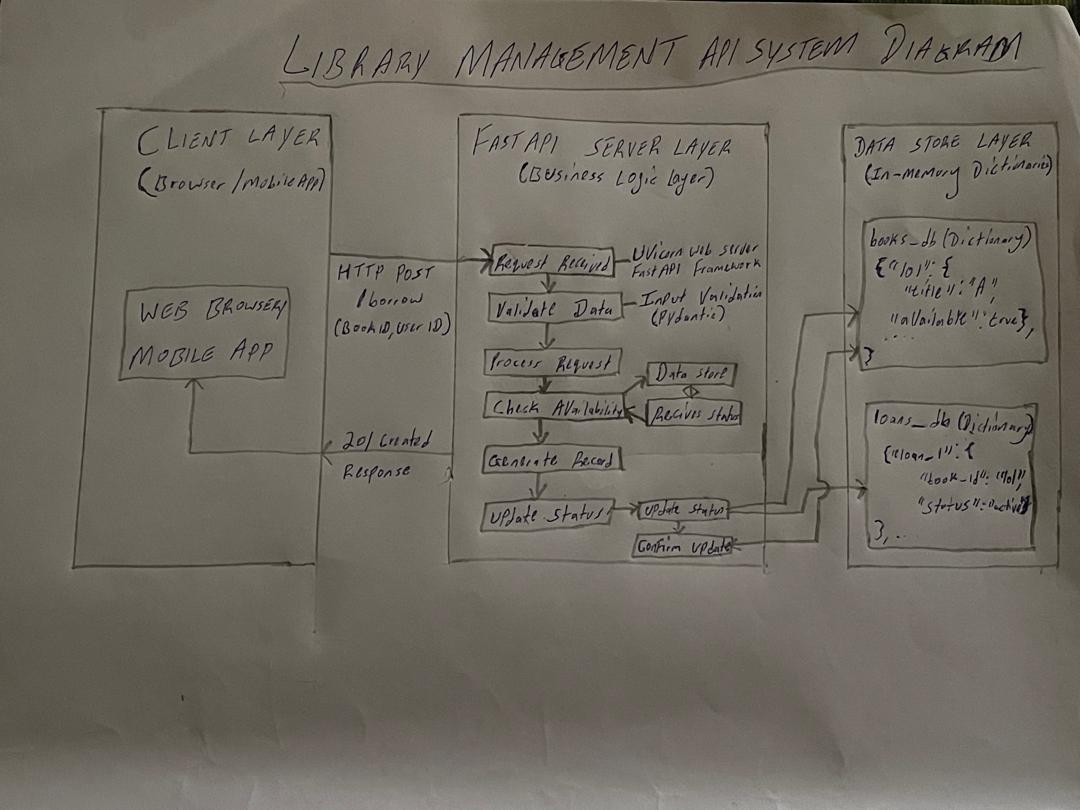 LIBRARY MANAGEMENT API SYSTEM DIAGRAM
CLIENT LAYER
(Browser/Mobile App)
WEB BROWSER/
MOBILE APP
HTTP POST
/borrow
(Book ID, User ID)
201 Created
Response
FAST API SERVER LAYER
(Business Logic Layer)
Request Received
Uvicorn Web Server
FastAPI Framework
Validate Data
Input Validation
(Pydantic)
Process Request
Check Availability
Data store
Recives status
Generate Record
Update Status
Update Status
Confirm Update
DATA STORE LAYER
(In-memory Dictionaries)
books_db (Dictionary)
{"101": {
"title": "A",
"available": true},
....
}
loans_db (Dictionary)
{"loan_1": {
"book_id": "101",
"status":
}, ...